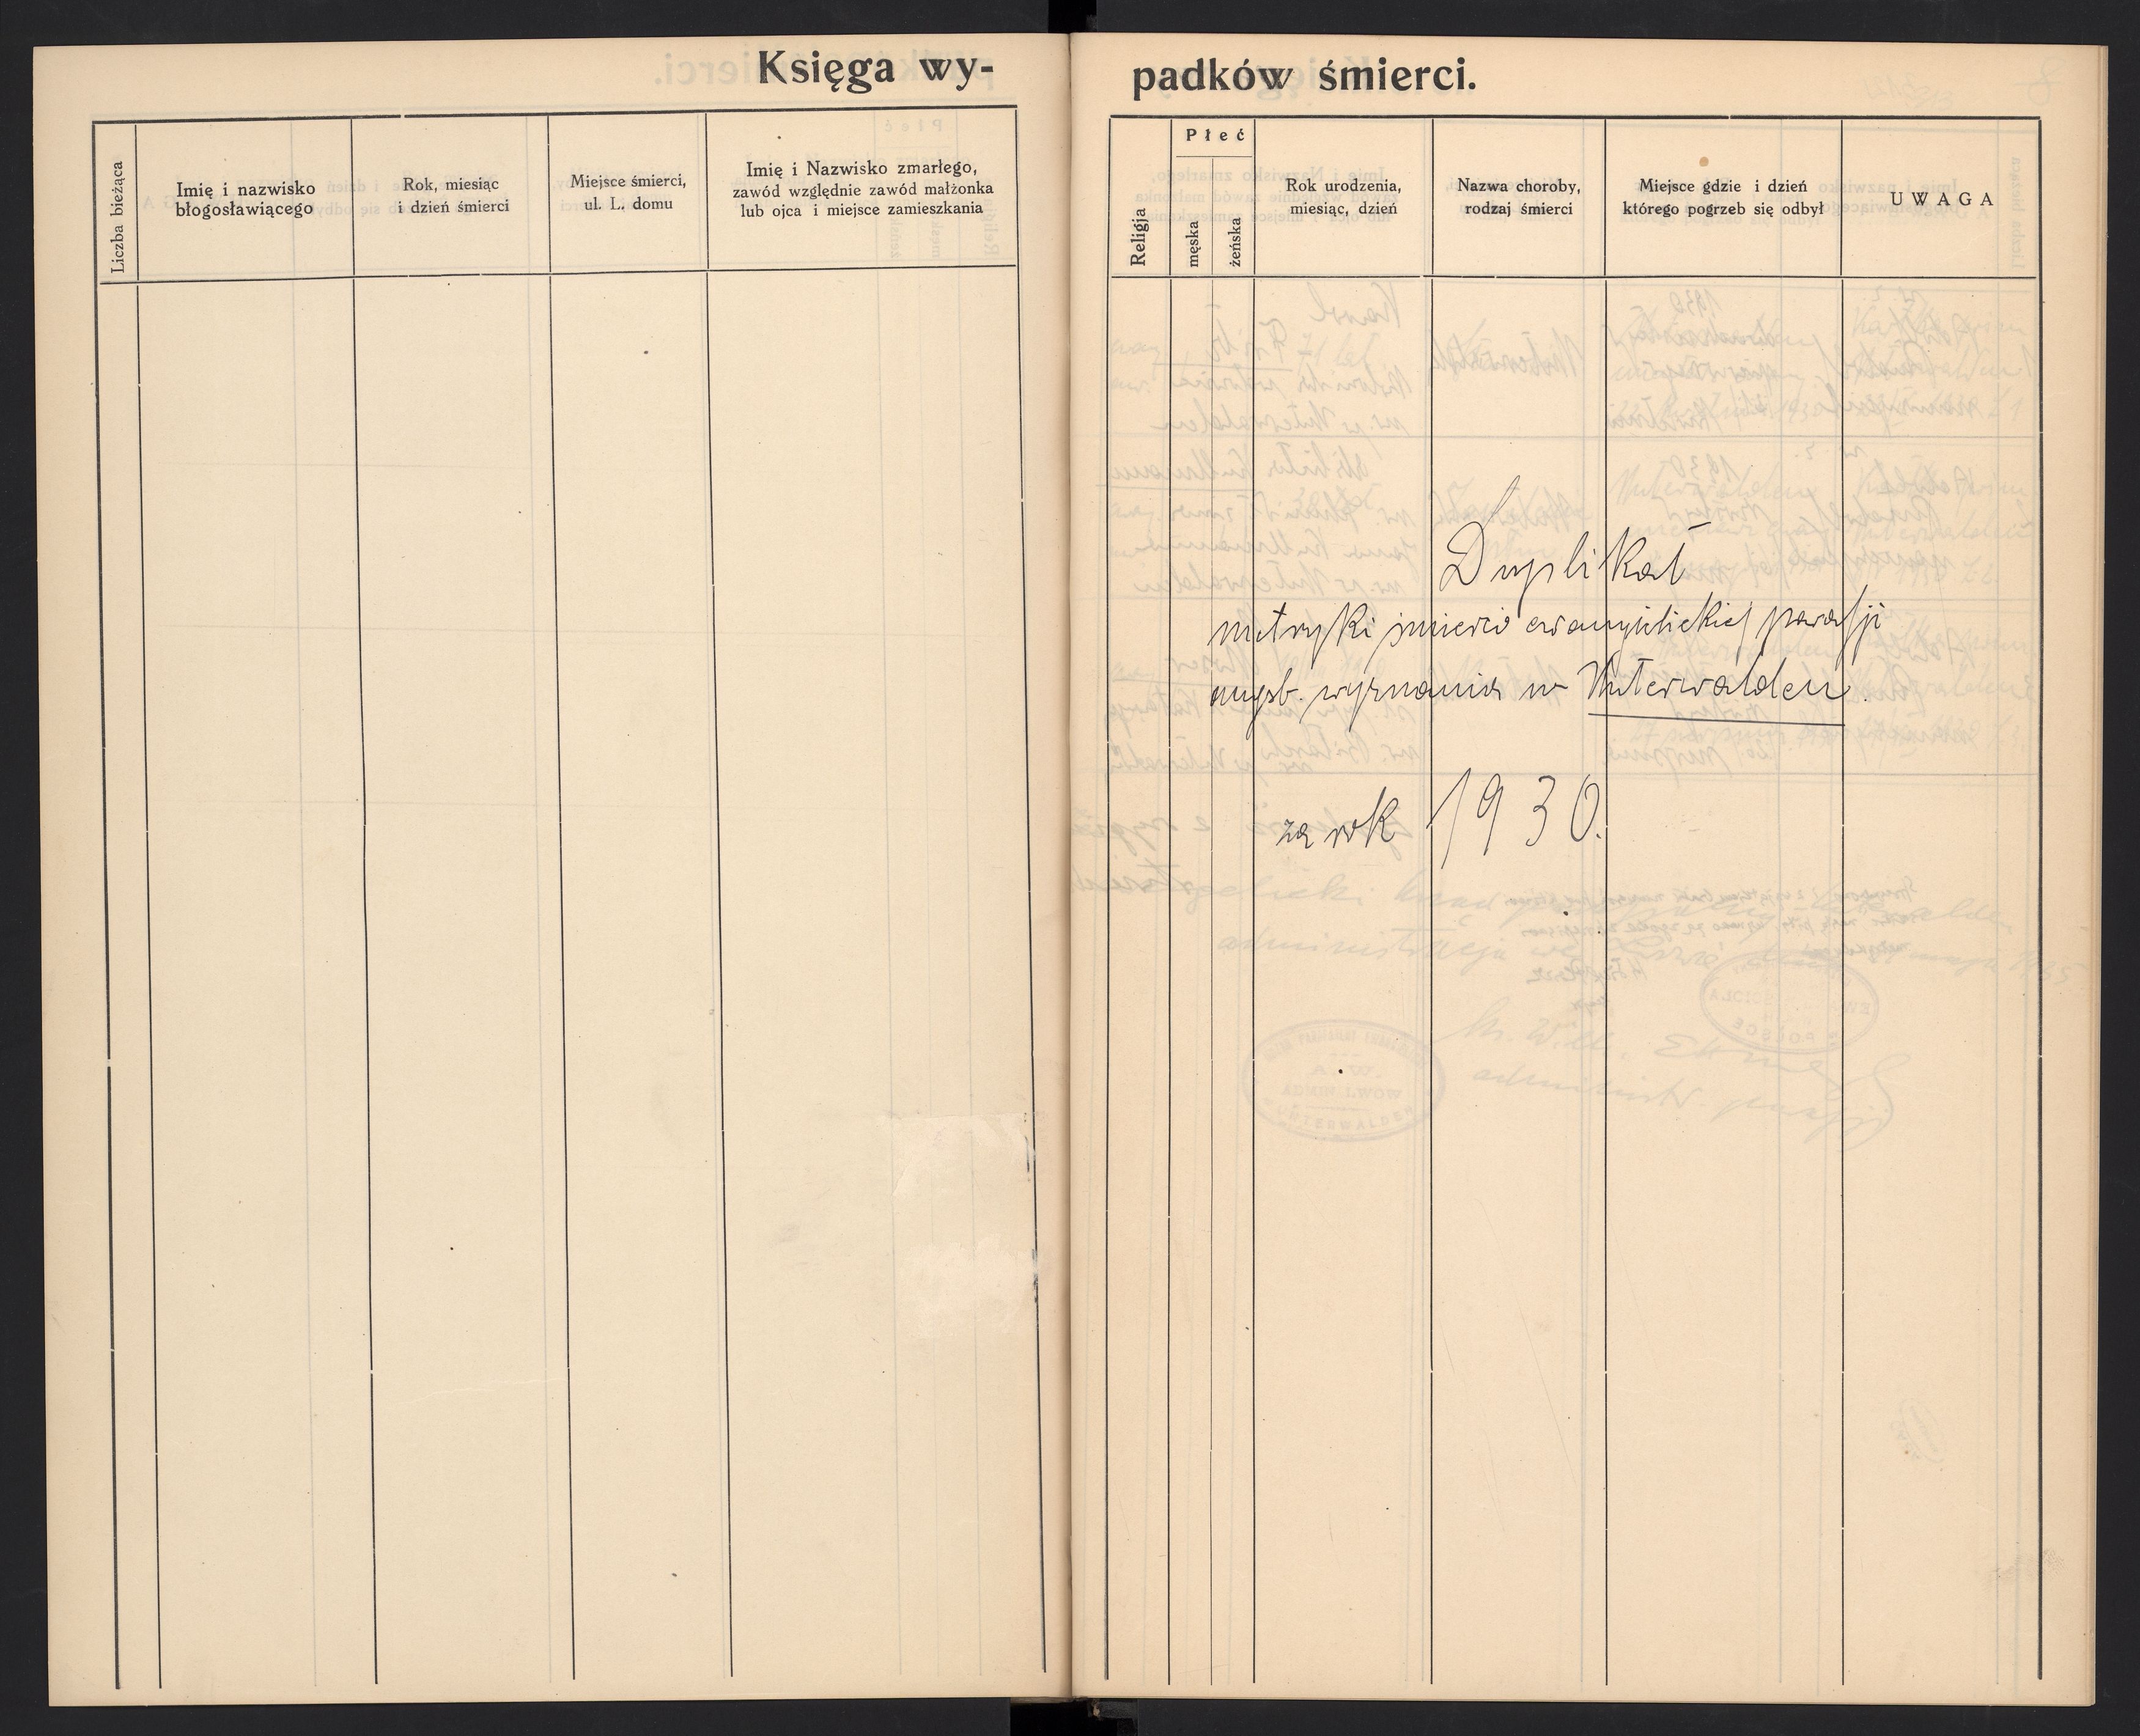 Księga wy-
padków śmierci.
Liczba bieżąca
Imię i nazwisko
błogosławiącego
Rok, miesiąc
i dzień śmierci
Miejsce śmierci,
ul. L. domu
Imię i Nazwisko zmarłego,
zawód względnie zawód małżonka
lub ojca i miejsce zamieszkania
Religja
Płeć
męska
żeńska
Rok urodzenia,
miesiąc, dzień
Nazwa choroby,
rodzaj śmierci
Miejsce gdzie i dzień
którego pogrzeb się odbył
UWAGA
Duplikat
metryki śmierci ewangielickiej parafji
augsb. wyznania w Unterwalden.
za rok 1930.